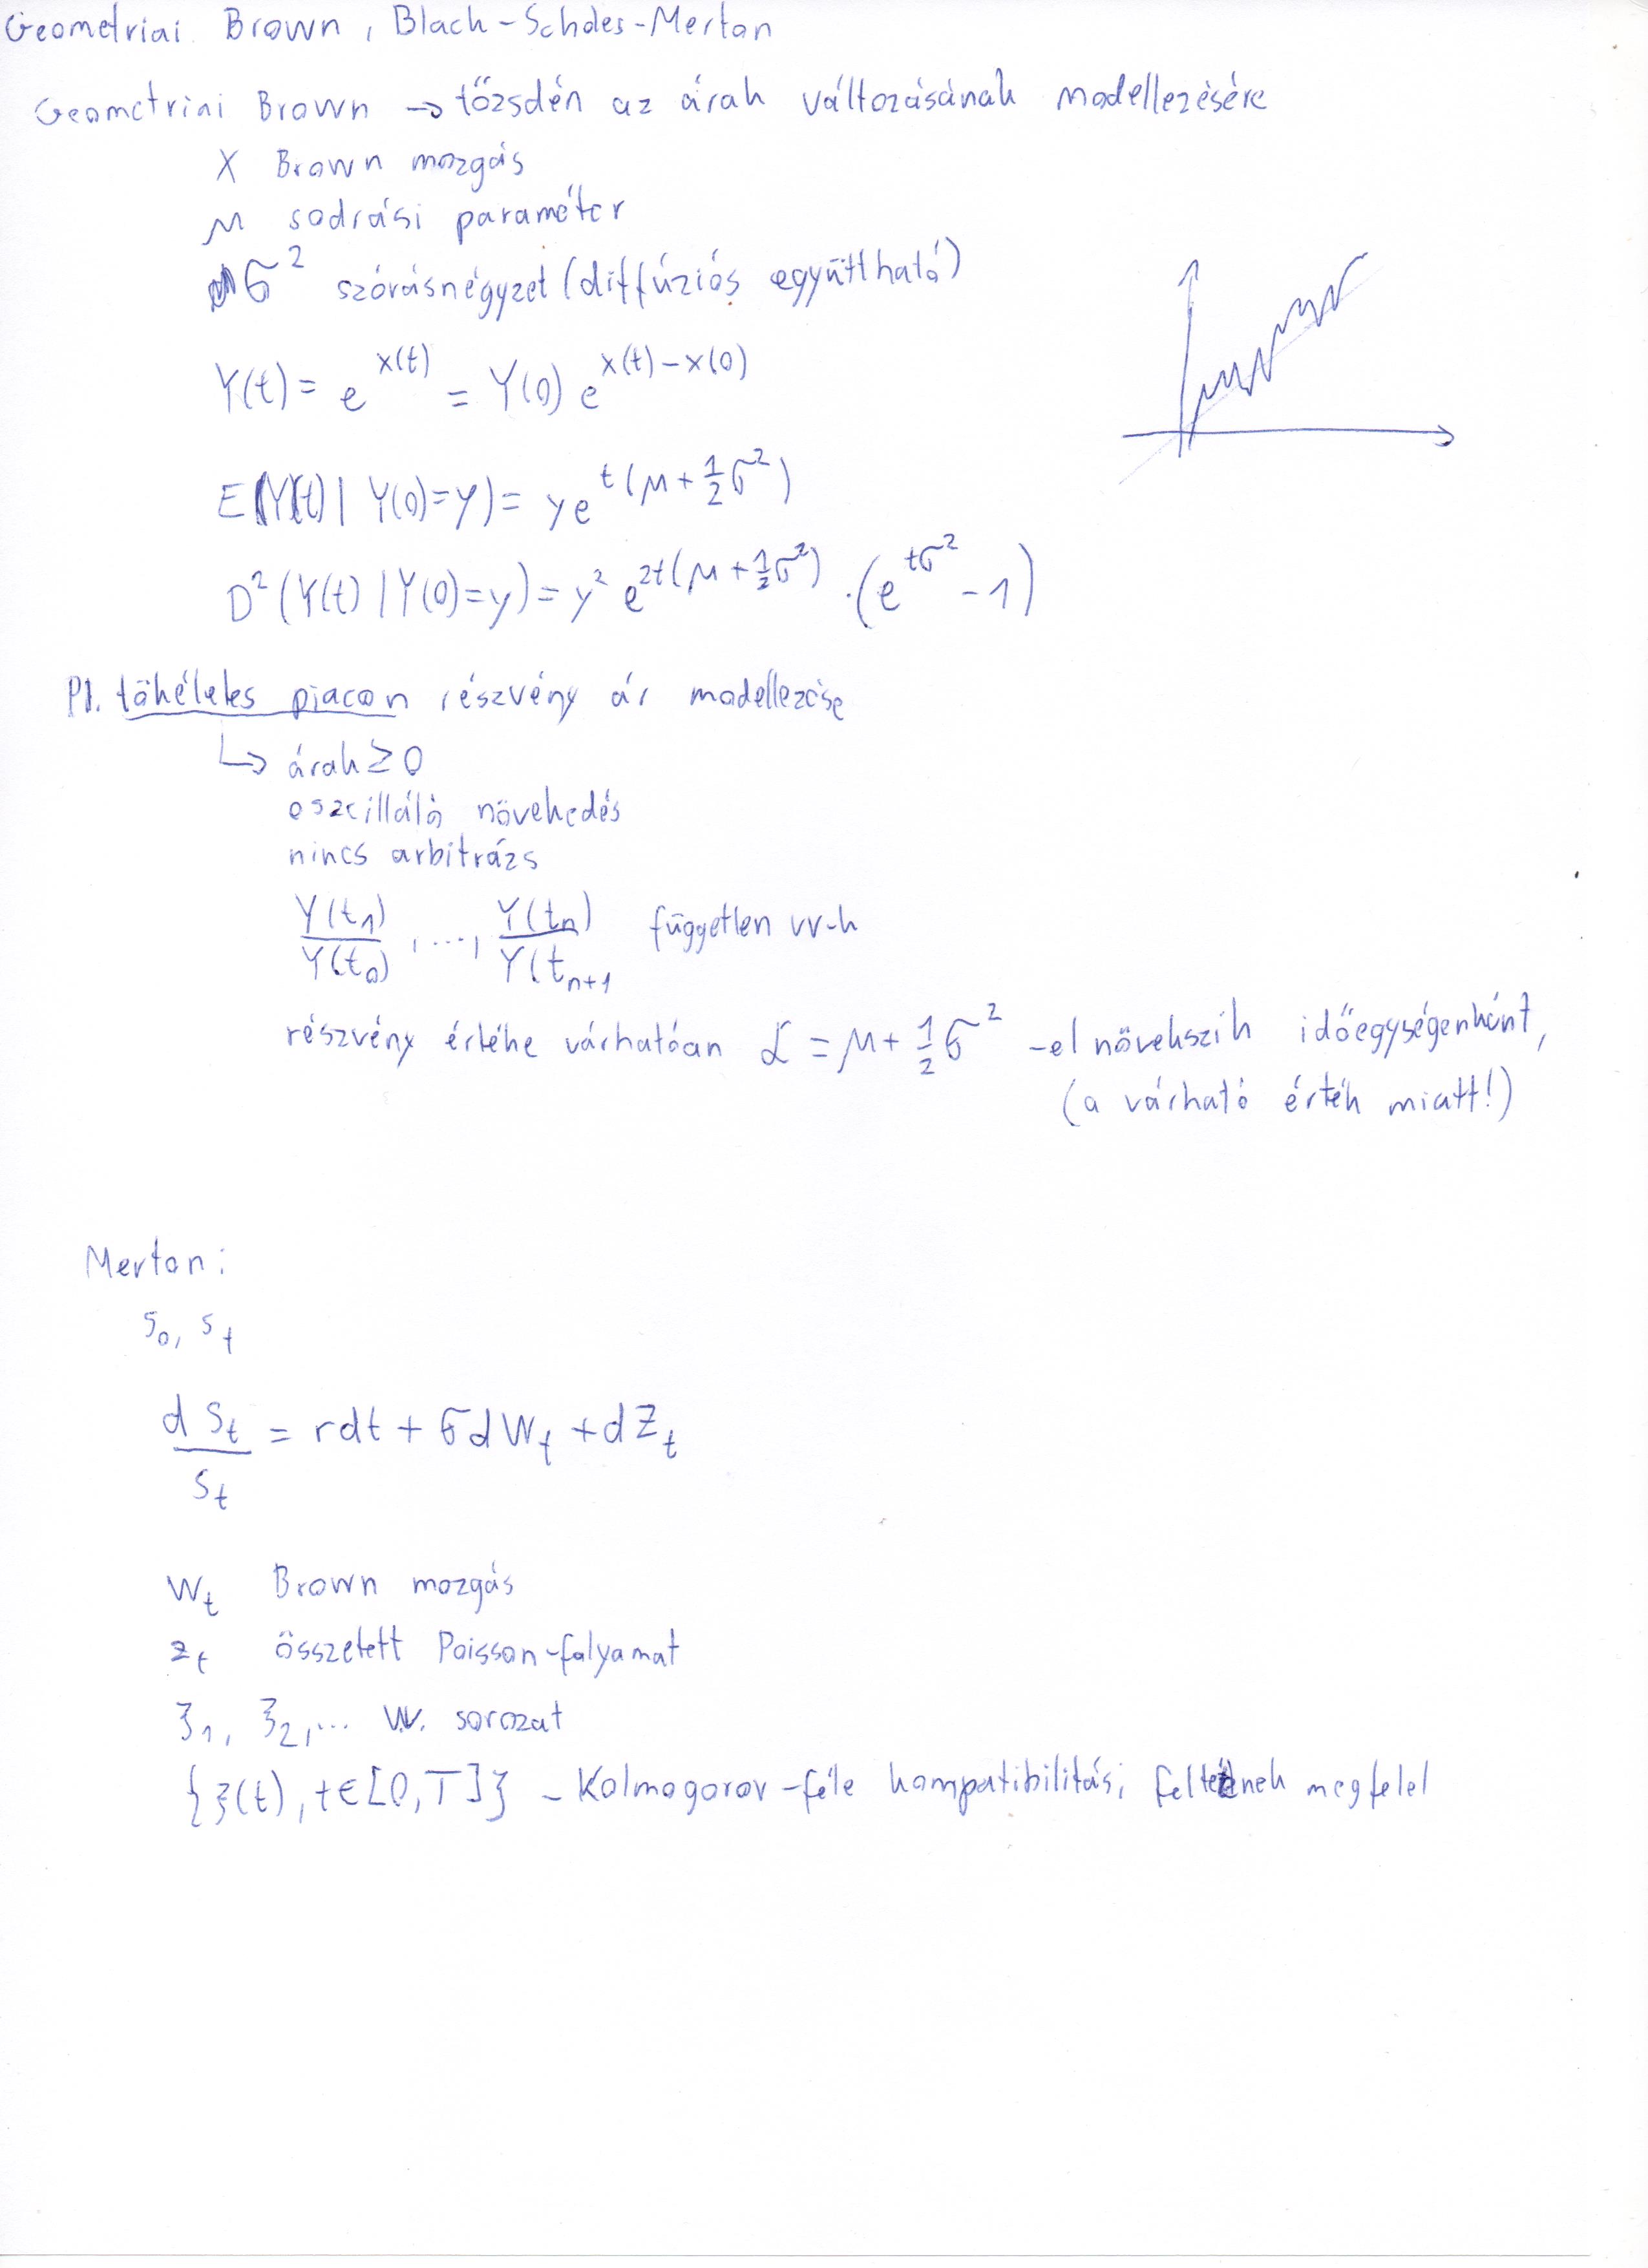 Geometriai Brown, Black-Scholes-Merton
Geometriai Brown → tőzsdén az árak változásának modellezésére
X Brown mozgás
μ sodrási paraméter
σ² szórásnégyzet (diffúziós együttható)
Y(t) = e^{x(t)} = Y(0) e^{x(t)-x(0)}
E(Y(t) | Y(0)=y) = y e^{t(μ + 1/2 σ²)}
D²(Y(t) | Y(0)=y) = y² e^{2t(μ + 1/2 σ²)} · (e^{tσ²} - 1)
Pl. tökéletes piacon részvény ár modellezése
↳ árak ≥ 0
oszcilláló növekedés
nincs arbitrázs
Y(t₁)/Y(t₀), ..., Y(tₙ)/Y(tₙ₊₁ független vv-k
részvény értéke várhatóan α = μ + 1/2 σ² -el növekszik időegységenként,
(a várható érték miatt!)
Merton:
S₀, S_t
dS_t/S_t = rdt + σdW_t + dZ_t
W_t Brown mozgás
Z_t összetett Poisson-folyamat
ξ₁, ξ₂, ... vv. sorozat
{ξ(t), t∈[0,T]} - Kolmogorov-féle kompatibilitási feltételnek megfelel